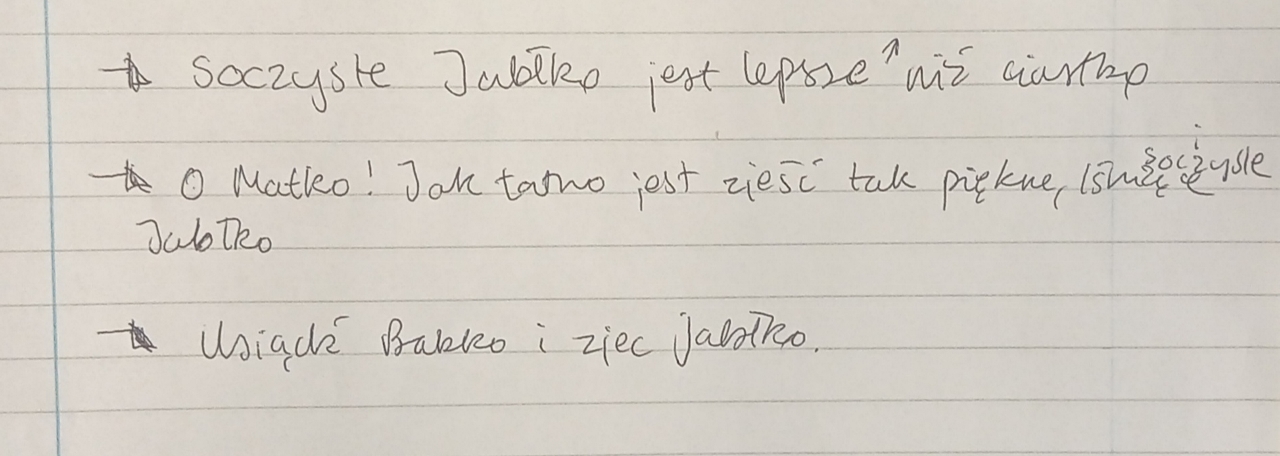 → Soczyste Jabłko jest lepsze ↑ niż ciastko
→ O Matko! Jak łatwo jest zjeść tak piękne, lśniące i soczyste
Jabłko
→ Usiądź Babko i zjec jabłko.